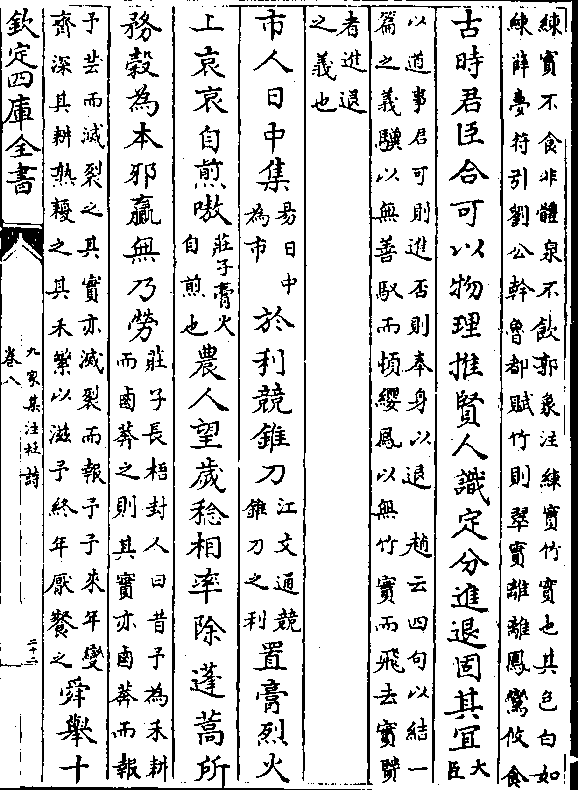 練實不食非體泉不飲郭象注練實竹實也其色白如
練薛夢符引劉公幹魯都賦竹則翠實離離鳳鸞攸食
古時君臣合可以物理推賢人識定分進退固其宜大
臣
以道事君可則進否則奉身以退　趙云四句以結一
篇之義驥以無善馭而頓纓鳳以無竹實而飛去實賢
者進退
之義也
市人日中集易日中
為市
於利競錐刀江文通競
錐刀之利
置膏烈火
上哀哀自煎嗷莊子膏火
自煎也
農人望歲稔相率除蓬蒿所
務穀為本邪贏無乃勞莊子長梧封人曰昔予為禾耕
而鹵莽之則其實亦鹵莽而報
予芸而滅裂之其實亦滅裂而報予予來年變
齊深其耕熟耰之其禾繁以滋予終年厭餐之
舜舉十
欽定四庫全書
九家集注杜詩
卷八
二十二